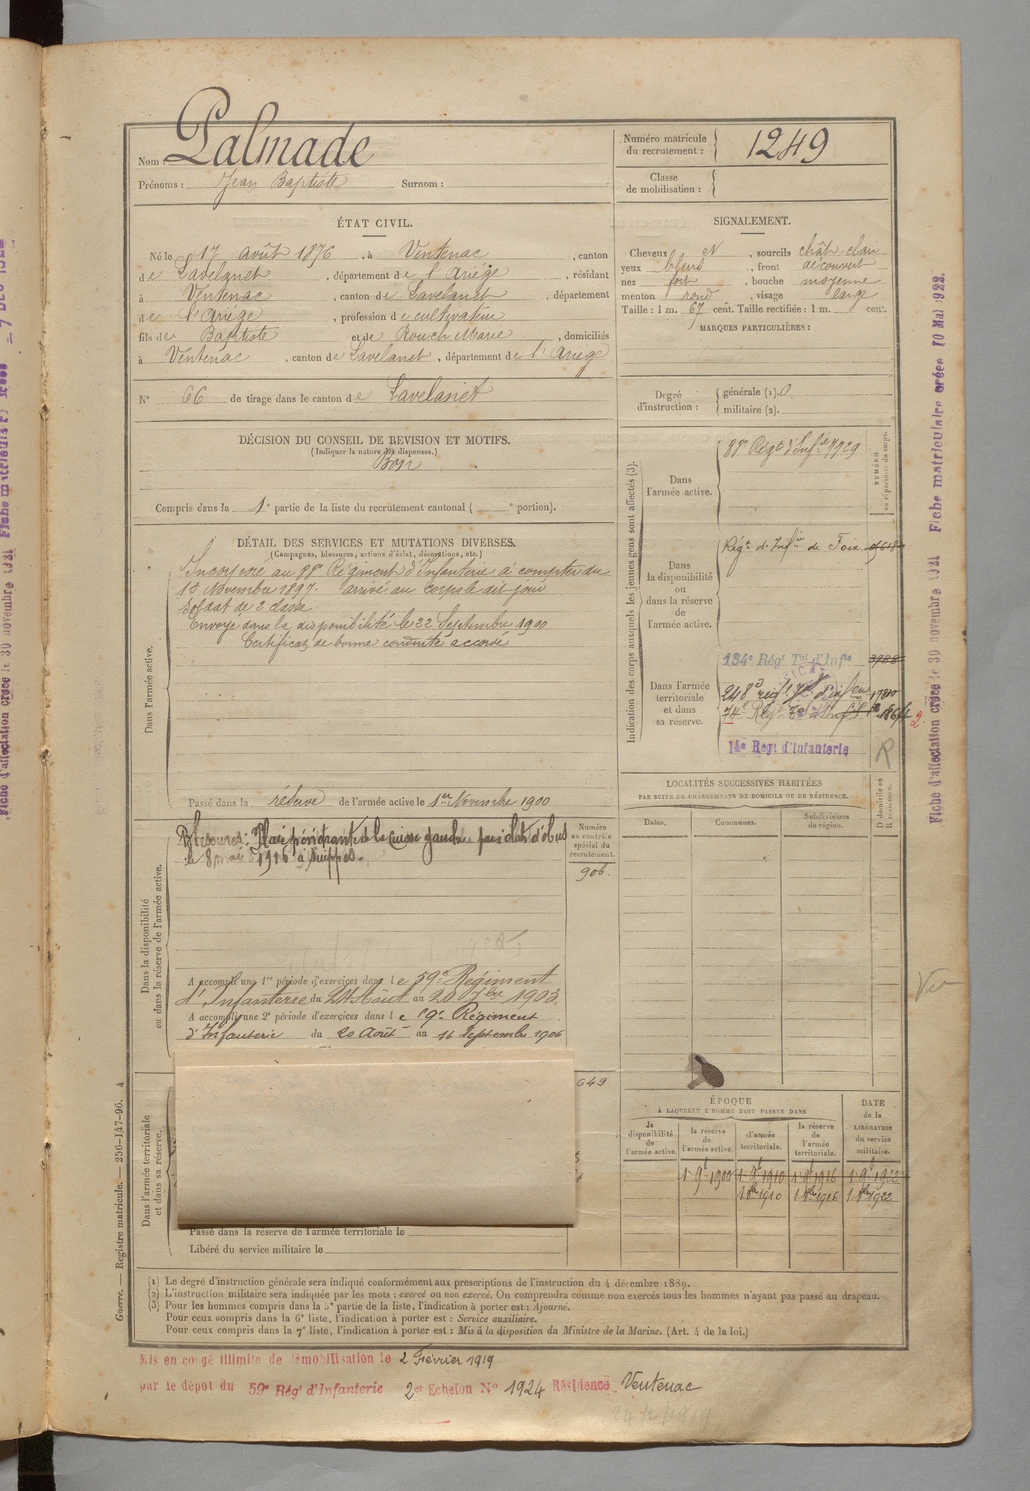 Nom Palmade
Prénoms : Jean Baptiste Surnom :
Numéro matricule du recrutement : 1249
Classe de mobilisation :
ÉTAT CIVIL.
Né le 17 août 1876, à Ventenac, canton
de Lavelanet, département de l'Ariège, résidant
à Ventenac, canton de Lavelanet, département
de l'Ariège, profession de cultivateur
fils de Baptiste et de Rouch Marie, domiciliés
à Ventenac, canton de Lavelanet, département de l'Ariège
N° 66 de tirage dans le canton de Lavelanet
SIGNALEMENT.
Cheveux N, sourcils chât-clair
yeux bleus, front découvert
nez fort, bouche moyenne
menton rond, visage large
Taille : 1 m. 67 cent. Taille rectifiée : 1 m. cent.
MARQUES PARTICULIÈRES :
Degré d'instruction : générale (1). 0
militaire (2).
DÉCISION DU CONSEIL DE REVISION ET MOTIFS.
(Indiquer la nature des dispenses.)
Bon
Compris dans la 1e partie de la liste du recrutement cantonal ( e portion).
DÉTAIL DES SERVICES ET MUTATIONS DIVERSES.
(Campagnes, blessures, actions d'éclat, décorations, etc.)
Dans l'armée active.
Incorporé au 88e Régiment d'Infanterie à compter du
13 Novembre 1897. arrivé au corps le dit jour
soldat de 2e classe.
Envoyé dans la disponibilité le 22 Septembre 1900
Certificat de bonne conduite accordé
Passé dans la réserve de l'armée active le 1er Novembre 1900
Dans la disponibilité ou dans la réserve de l'armée active.
Blessures : Plaie pénétrante de la cuisse gauche par éclat d'obus
le 8 mai 1916 à Suippes.
Numéro au contrôle spécial du recrutement.
906.
A accompli une 1re période d'exercices dans le 59e Régiment
d'Infanterie du 24 Août au 20 7bre 1903.
A accompli une 2e période d'exercices dans le 59e Régiment
d'Infanterie du 20 Août au 16 Septembre 1906
649
Dans l'armée territoriale et dans sa réserve.
Passé dans la réserve de l'armée territoriale le
Libéré du service militaire le
Indication des corps auxquels les jeunes gens sont affectés (3).
NUMÉRO au répertoire du corps.
Dans l'armée active.
88e Régt d'Infie 7929
Dans la disponibilité ou dans la réserve de l'armée active.
Régt d'Infie de Foix
Dans l'armée territoriale et dans sa réserve.
134e Régt Tal d'Infie
248e
74e Régt
14e Régt d'Infanterie
R
LOCALITÉS SUCCESSIVES HABITÉES
PAR SUITE DE CHANGEMENTS DE DOMICILE OU DE RÉSIDENCE.
Dates. Communes. Subdivisions de région. D domicile ou R résidence.
Vu
ÉPOQUE
À LAQUELLE L'HOMME DOIT PASSER DANS
la disponibilité de l'armée active. la réserve de l'armée active. l'armée territoriale. la réserve de l'armée territoriale.
DATE de la LIBÉRATION du service militaire.
1 9b 1900 1 9b 1910 1 9b 1916 1 9b 1922
1910 1916 1922
(1) Le degré d'instruction générale sera indiqué conformément aux prescriptions de l'instruction du 4 décembre 1889.
(2) L'instruction militaire sera indiquée par les mots : exercé ou non exercé. On comprendra comme non exercés tous les hommes n'ayant pas passé au drapeau.
(3) Pour les hommes compris dans la 5e partie de la liste, l'indication à porter est : Ajourné.
Pour ceux compris dans la 6e liste, l'indication à porter est : Service auxiliaire.
Pour ceux compris dans la 7e liste, l'indication à porter est : Mis à la disposition du Ministre de la Marine. (Art. 4 de la loi.)
Guerre. — Registre matricule. — 256-147-96. 4
Mis en congé illimité de démobilisation le 2 Février 1919
par le dépôt du 59e Régt d'Infanterie 2e Echelon N° 1924 Résidence Ventenac
Fiche d'affectation créée le 30 novembre 1921 Fiche matriculaire créée 10 Mai 1922.
Fiche d'affectation créée le 30 novembre 1921 Fiche matricule